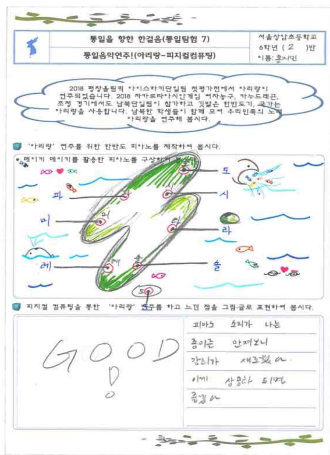 통일을 향한 한걸음(통일탐험 7)
통일음악연주!(아리랑-피지컬컴퓨팅)
6학년 ( 2 )반
이름:
2018 평창올림픽의 아이스하키단일팀 첫평가전에서 아리랑이
연주되었습니다. 2018 자카르타아시안게임 여자농구, 카누드래곤,
조정 경기에서도 남북단일팀이 참가하고 깃발은 한반도기, 국가는
아리랑을 사용합니다. 남북한 학생들이 함께 모여 우리민족의 노래
아리랑을 연주해 봅시다.
'아리랑' 연주를 위한 한반도 피아노를 제작하여 봅시다.
메이키 메이키를 활용한 피아노를 구상하여 봅시다.
도
파
시
미
라
레
솔
도
피지컬 컴퓨팅을 통한 '아리랑' 연주를 하고 느낀 점을 그림·글로 표현하여 봅시다.
GOOD!
피아노 소리가 나는
종이는 안 여보니
이제